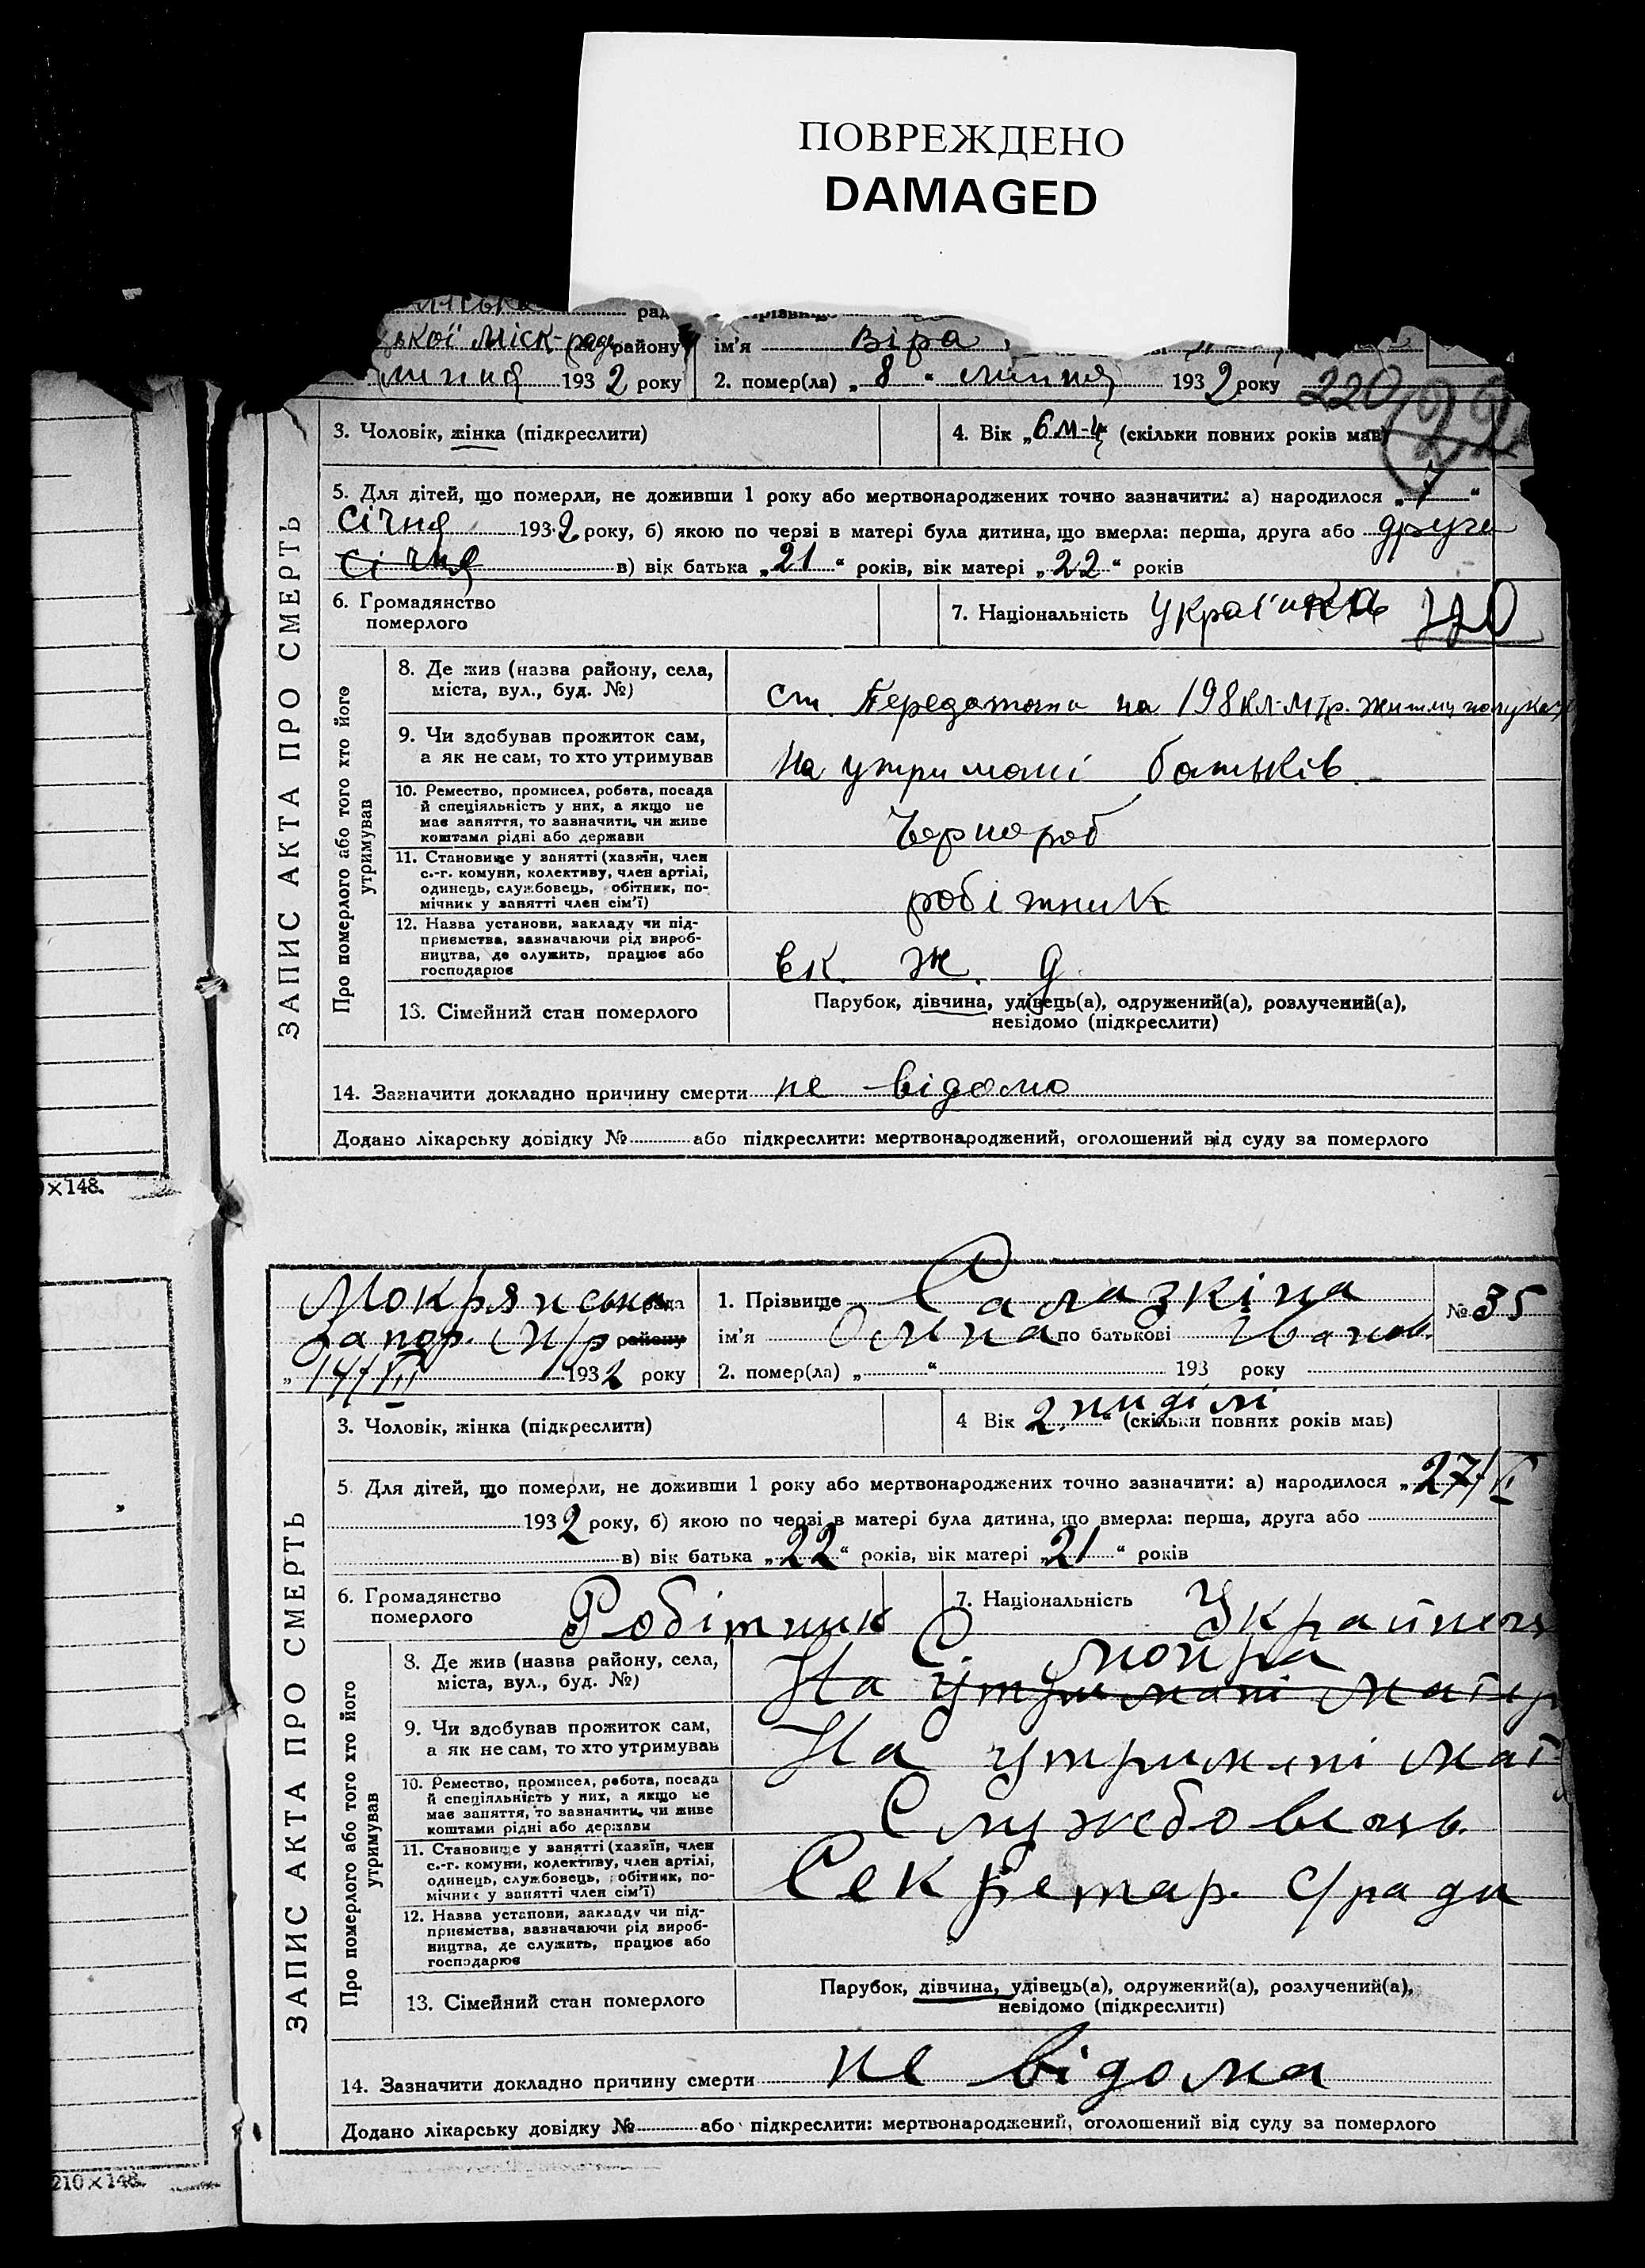 ПОВРЕЖДЕНО
DAMAGED
рад
ім'я Віра
району
липня 1932 року
2. помер(ла) „8“ липня 1932 року
220
3. Чоловік, жінка (підкреслити)
4. Вік „6 м-ц“ (скільки повних років мав)
5. Для дітей, що померли, не доживши 1 року або мертвонароджених точно зазначити: а) народилося „7“
січня 1932 року, б) якою по черзі в матері була дитина, що вмерла: перша, друга або друга
січня в) вік батька „21“ років, вік матері „22“ років
6. Громадянство померлого
7. Національність Українка
ЗАПИС АКТА ПРО СМЕРТЬ
Про померлого або того хто його утримував
8. Де жив (назва району, села,
міста, вул., буд. №)
ст. Передатона на 198 кл-мтр.
9. Чи здобував прожиток сам,
а як не сам, то хто утримував
На утримані батьків
10. Ремество, промисел, робота, посада
й спеціяльність у них, а якщо не
має заняття, то зазначити, чи живе
коштами рідні або держави
Чернороб
11. Становище у занятті (хазяїн, член
с.-г. комуни, колективу, член артілі,
одинець, службовець, обітник, по-
мічник у занятті член сім'ї)
робітник
12. Назва установи, закладу чи під-
приємства, зазначаючи рід вироб-
ництва, де служить, працює або
господарює
Ек. ж. д.
13. Сімейний стан померлого
Парубок, дівчина, удівець(а), одружений(а), розлучений(а),
невідомо (підкреслити)
14. Зазначити докладно причину смерти не відомо
Додано лікарську довідку № або підкреслити: мертвонароджений, оголошений від суду за померлого
×148.
Мокрянська рада
Запор. м/р району
„14/VII 1932 року
1. Прізвище Салазкіна
№ 35
ім'я по батькові Іванов.
2. помер(ла) „ “ 193 року
3. Чоловік, жінка (підкреслити)
4 Вік „2 ниділі“ (скільки повних років мав)
5. Для дітей, що померли, не доживши 1 року або мертвонароджених точно зазначити: а) народилося „27/VI
1932 року, б) якою по черзі в матері була дитина, що вмерла: перша, друга або
в) вік батька „22“ років, вік матері „21“ років
6. Громадянство померлого
Робітник
7. Національність
ЗАПИС АКТА ПРО СМЕРТЬ
Про померлого або того хто його утримував
8. Де жив (назва району, села,
міста, вул., буд. №)
С мокра
На утримані
9. Чи здобував прожиток сам,
а як не сам, то хто утримував
На утримані мат
10. Ремество, промисел, робота, посада
й спеціяльність у них, а якщо не
має заняття, то зазначити, чи живе
коштами рідні або держави
Службовець
11. Становище у занятті (хазяїн, член
с.-г. комуни, колективу, член артілі,
одинець, службовець, обітник, по-
мічник у занятті член сім'ї)
Секретар. с/ради
12. Назва установи, закладу чи під-
приємства, зазначаючи рід вироб-
ництва, де служить, працює або
господарює
13. Сімейний стан померлого
Парубок, дівчина, удівець(а), одружений(а), розлучений(а),
невідомо (підкреслити)
14. Зазначити докладно причину смерти не відома
Додано лікарську довідку № або підкреслити: мертвонароджений, оголошений від суду за померлого
210×148.